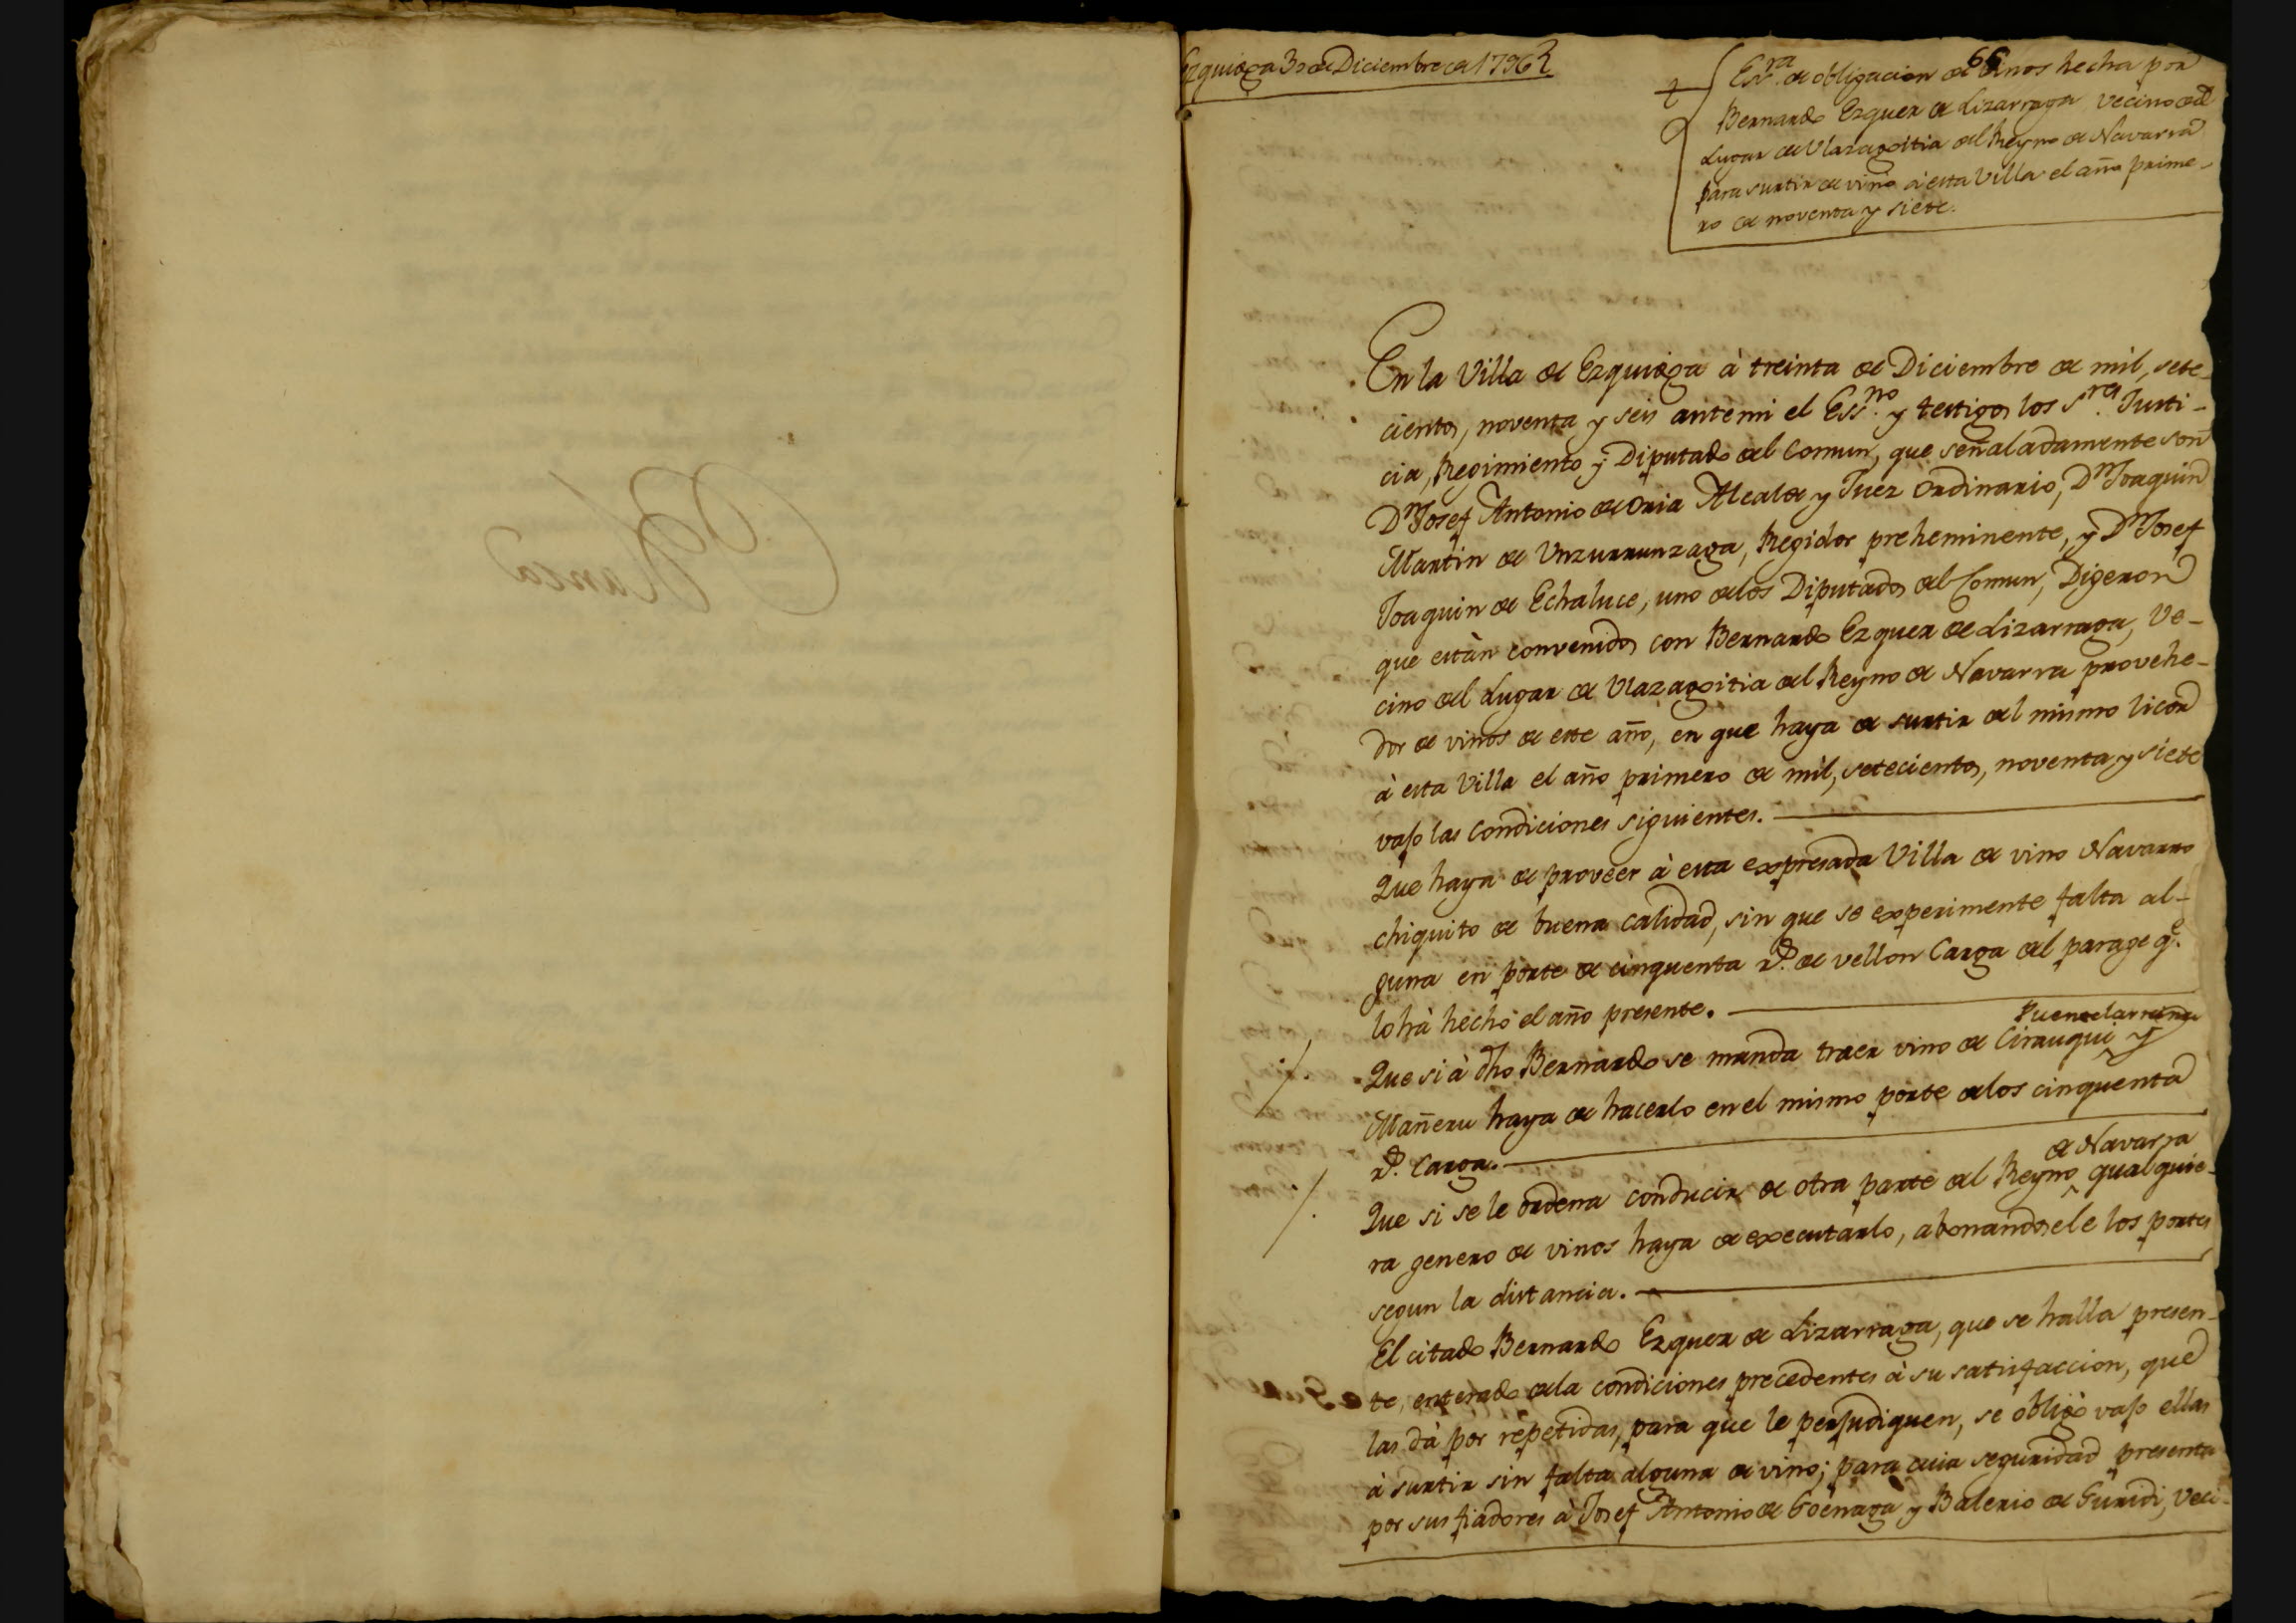 Ezquioga 30 de Diciembre de 1796
66
Essra. de obligacion de vinos hecha por
Bernardo Ezquer de Lizarraga vecino del
Lugar de Vlazagoitia del Reyno de Navarra
para surtir de vino à esta Villa el año prime-
ro de noventa y siete.
En la Villa de Ezquioga à treinta de Diciembre de mil, sete-
cientos, noventa y seis antemi el Essno. y testigos los Sres. Justi-
cia, Regimiento y Diputado del Comun, que señaladamente son
Dn Josef Antonio de Oria Alcalde y Juez Ordinario, Dn Joaquin
Martin de Vnzurrunzaga, Regidor preheminente, y Dn Josef
Joaquin de Echaluce, uno delos Diputados del Comun, Digeron
que estàn convenidos con Bernardo Ezquer de Lizarraga, Ve-
cino del Lugar de Vlazagoitia del Reyno de Navarra provehe-
dor de vinos de este año, en que haya de surtir del mismo licor
à esta Villa el año primero de mil, setecientos, noventa y siete
vajo las Condiciones siguientes.
Que haya de proveer à esta expresada Villa de vino Navarro
chiquito de buena calidad, sin que se experimente falta al-
guna en porte de cinquenta rs. de vellon Carga del parage qe.
lo hà hecho el año presente.
Puentelarreina
Que si à dho Bernardo se manda traer vino de Cirauqui y
Mañeru haya de hacerlo en el mismo porte delos cinquenta
rs. Carga.
de Navarra
Que si se le ordena conducir de otra parte del Reyno qualquie-
ra genero de vinos haya de executarlo, abonandosele los portes
segun la distancia.
El citado Bernardo Ezquer de Lizarraga, que se halla presen-
te, enterado dela condiciones precedentes à su satisfaccion, que
las dà por repetidas, para que le perjudiquen, se obligò vajo ellas
à surtir sin falta alguna de vino; para cuia seguridad presenta
por sus fiadores à Josef Antonio de Goenaga y Balerio de Guridi, Veci-